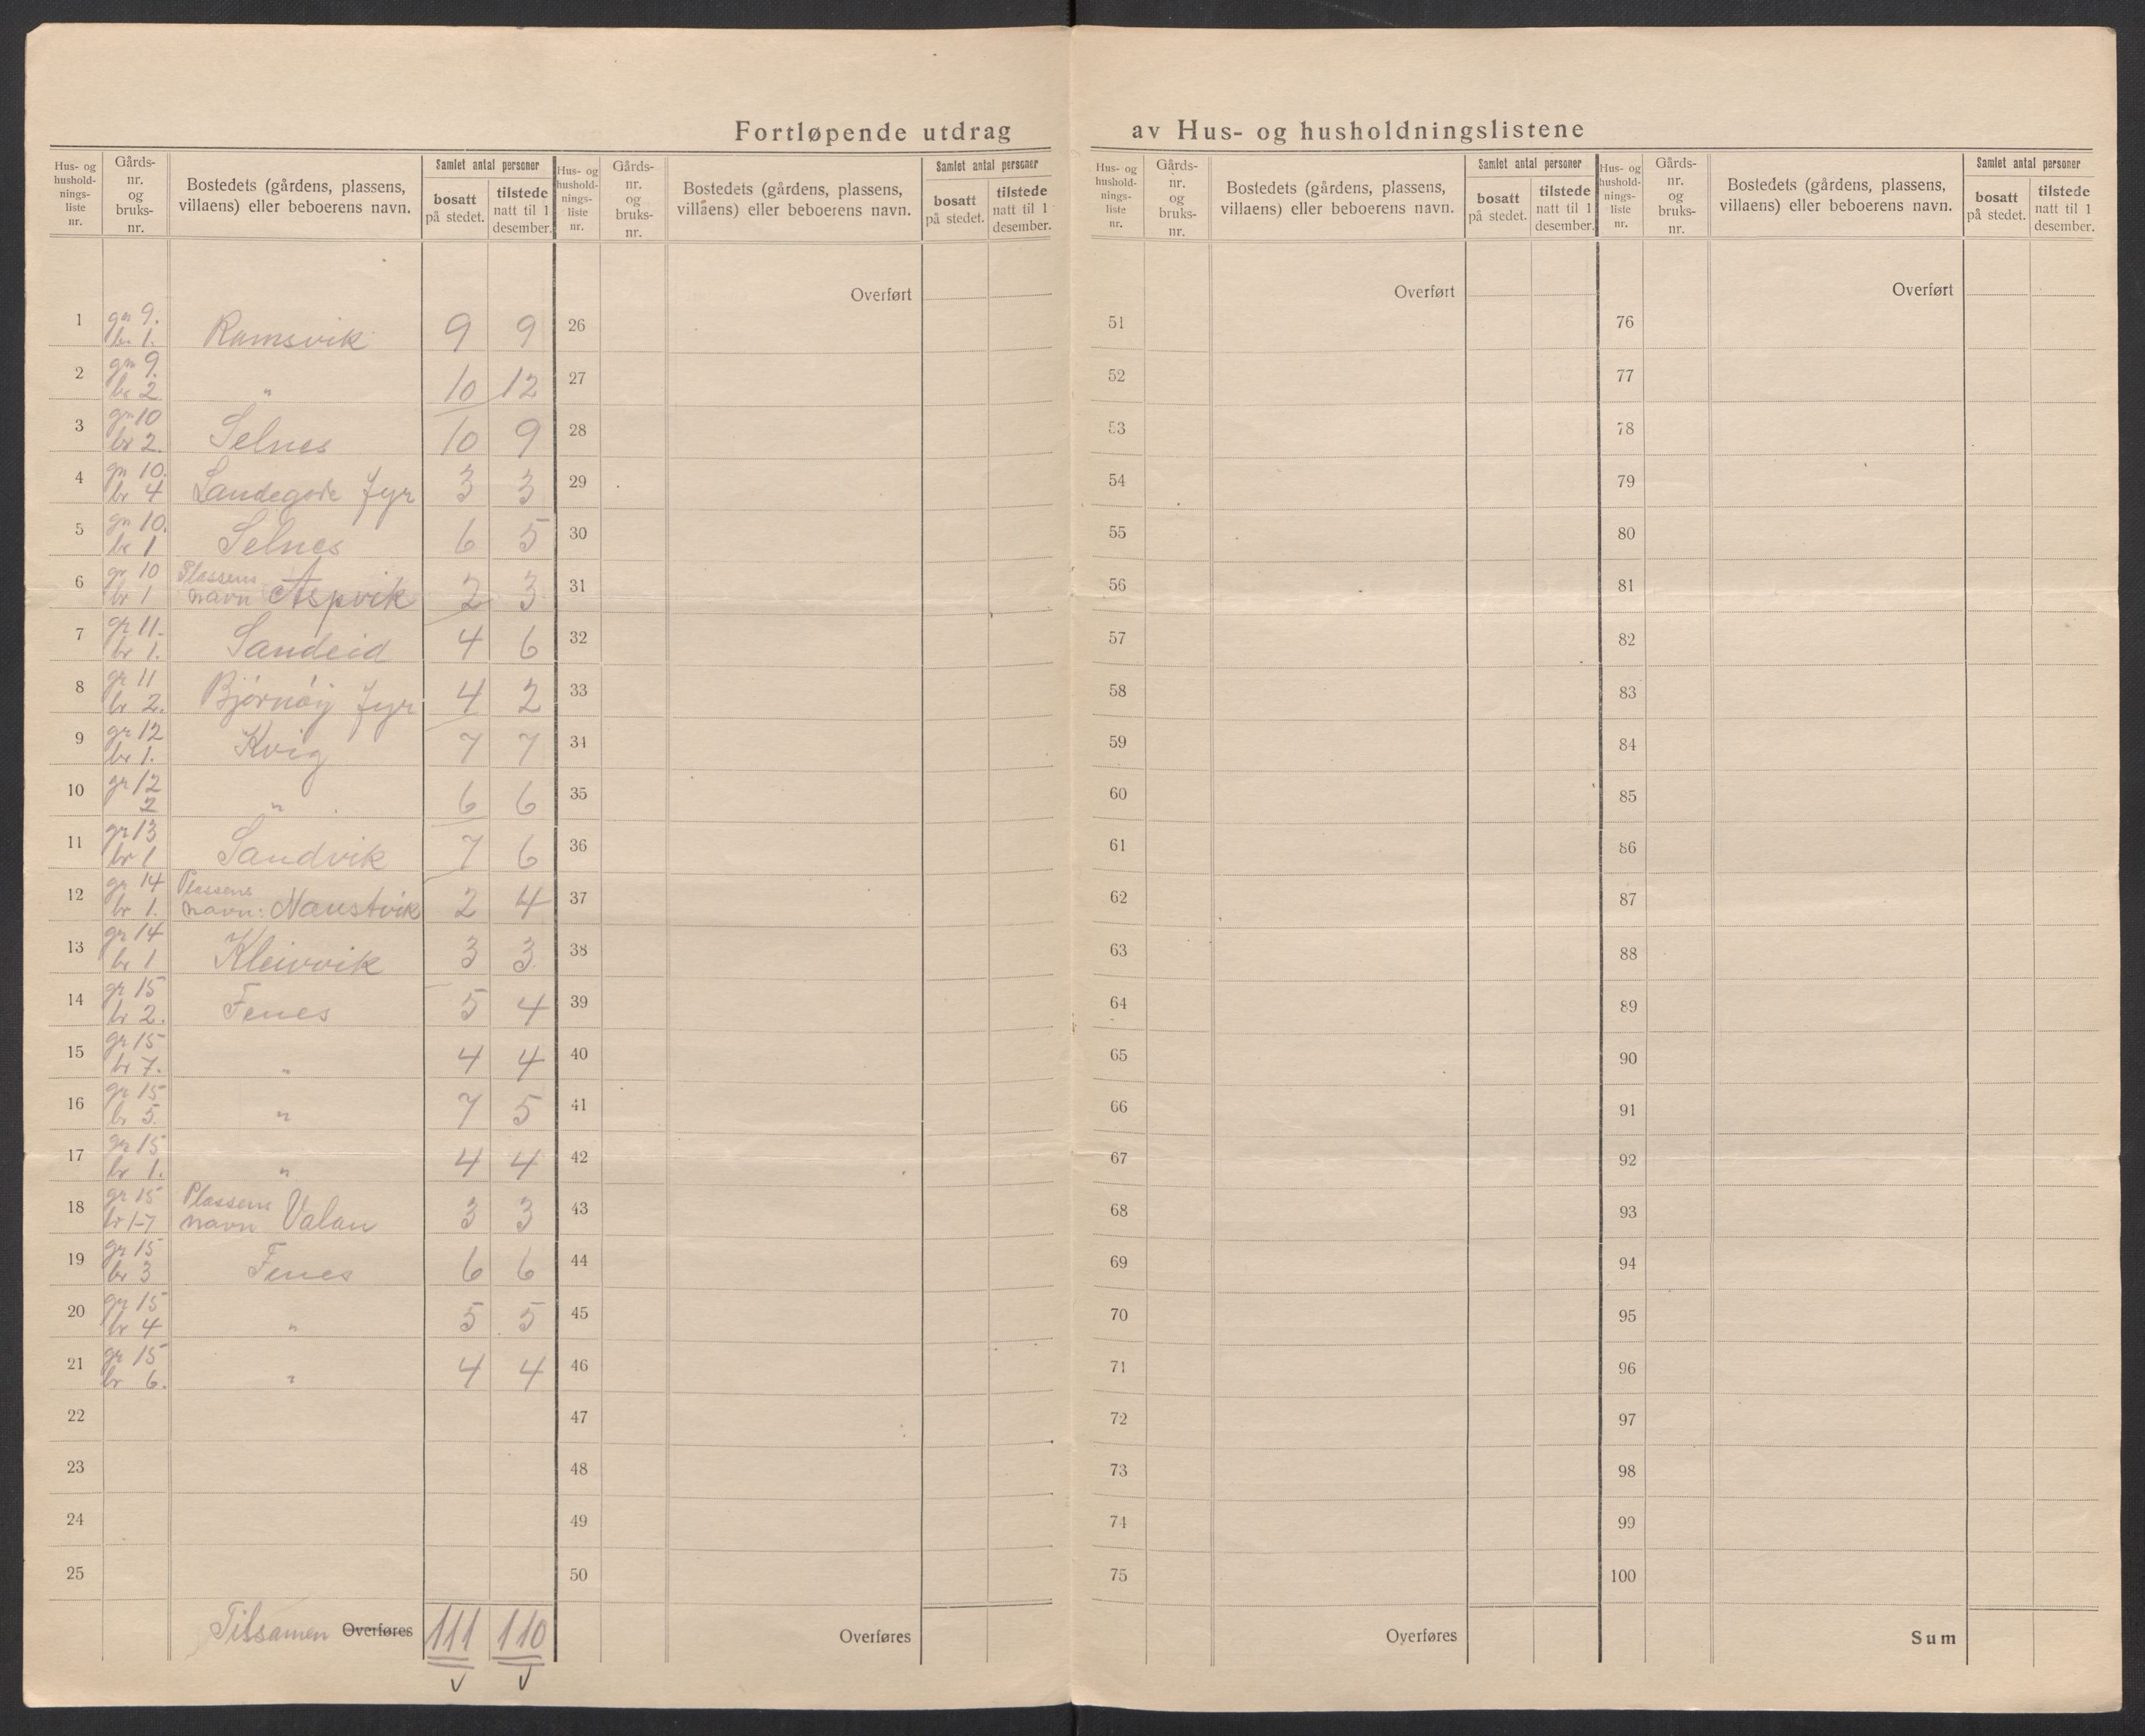 Fortløpende utdrag av Hus- og husholdningslistene
Hus- og hushold-nings-liste nr. | Gårds-nr. og bruks-nr. | Bostedets (gårdens, plassens, villaens) eller beboerens navn. | Samlet antal personer | bosatt på stedet. | tilstede natt til 1 desember.
1 | gn 9. br. 1. | Ramsvik | 9 | 9
2 | gn 9. br 2 | " | 10 | 12
3 | gn 10 br 2. | Selnes | 10 | 9
4 | gn 10. br 4 | Landegode fyr | 3 | 3
5 | gn 10. br 1 | Selnes | 6 | 5
6 | gr 10 br 1 | Plassens navn Aspvik | 2 | 3
7 | gr 11. br 1. | Sandeid | 4 | 6
8 | gr 11 br 2. | Bjørnøy fyr | 4 | 2
9 | gr 12 br 1. | Kvig | 7 | 7
10 | gr 12 2 | " | 6 | 6
11 | gr 13 br 1 | Sandvik | 7 | 6
12 | gr 14 br 1. | Plassens navn: Naustvik | 2 | 4
13 | gr 14 br 1 | Kleivvik | 3 | 3
14 | gr 15 br 2. | Fenes | 5 | 4
15 | gr 15 br 7. | " | 4 | 4
16 | gr 15 br 5. | " | 7 | 5
17 | gr 15 br 1. | " | 4 | 4
18 | gr 15 br 1-7 | Plassens navn Valan | 3 | 3
19 | gr 15 br 3 | Fenes | 6 | 6
20 | gr 15 br 4 | " | 5 | 5
21 | gr 15 br 6. | " | 4 | 4
22
23
24
25
Tilsamen Overføres | 111 | 110
Hus- og hushold-nings-liste nr. | Gårds-nr. og bruks-nr. | Bostedets (gårdens, plassens, villaens) eller beboerens navn. | Samlet antal personer | bosatt på stedet. | tilstede natt til 1 desember.
Overført
26
27
28
29
30
31
32
33
34
35
36
37
38
39
40
41
42
43
44
45
46
47
48
49
50
Overføres
Hus- og hushold-nings-liste nr. | Gårds-nr. og bruks-nr. | Bostedets (gårdens, plassens, villaens) eller beboerens navn. | Samlet antal personer | bosatt på stedet. | tilstede natt til 1 desember.
Overført
51
52
53
54
55
56
57
58
59
60
61
62
63
64
65
66
67
68
69
70
71
72
73
74
75
Overføres
Hus- og hushold-nings-liste nr. | Gårds-nr. og bruks-nr. | Bostedets (gårdens, plassens, villaens) eller beboerens navn. | Samlet antal personer | bosatt på stedet. | tilstede natt til 1 desember.
Overført
76
77
78
79
80
81
82
83
84
85
86
87
88
89
90
91
92
93
94
95
96
97
98
99
100
Sum